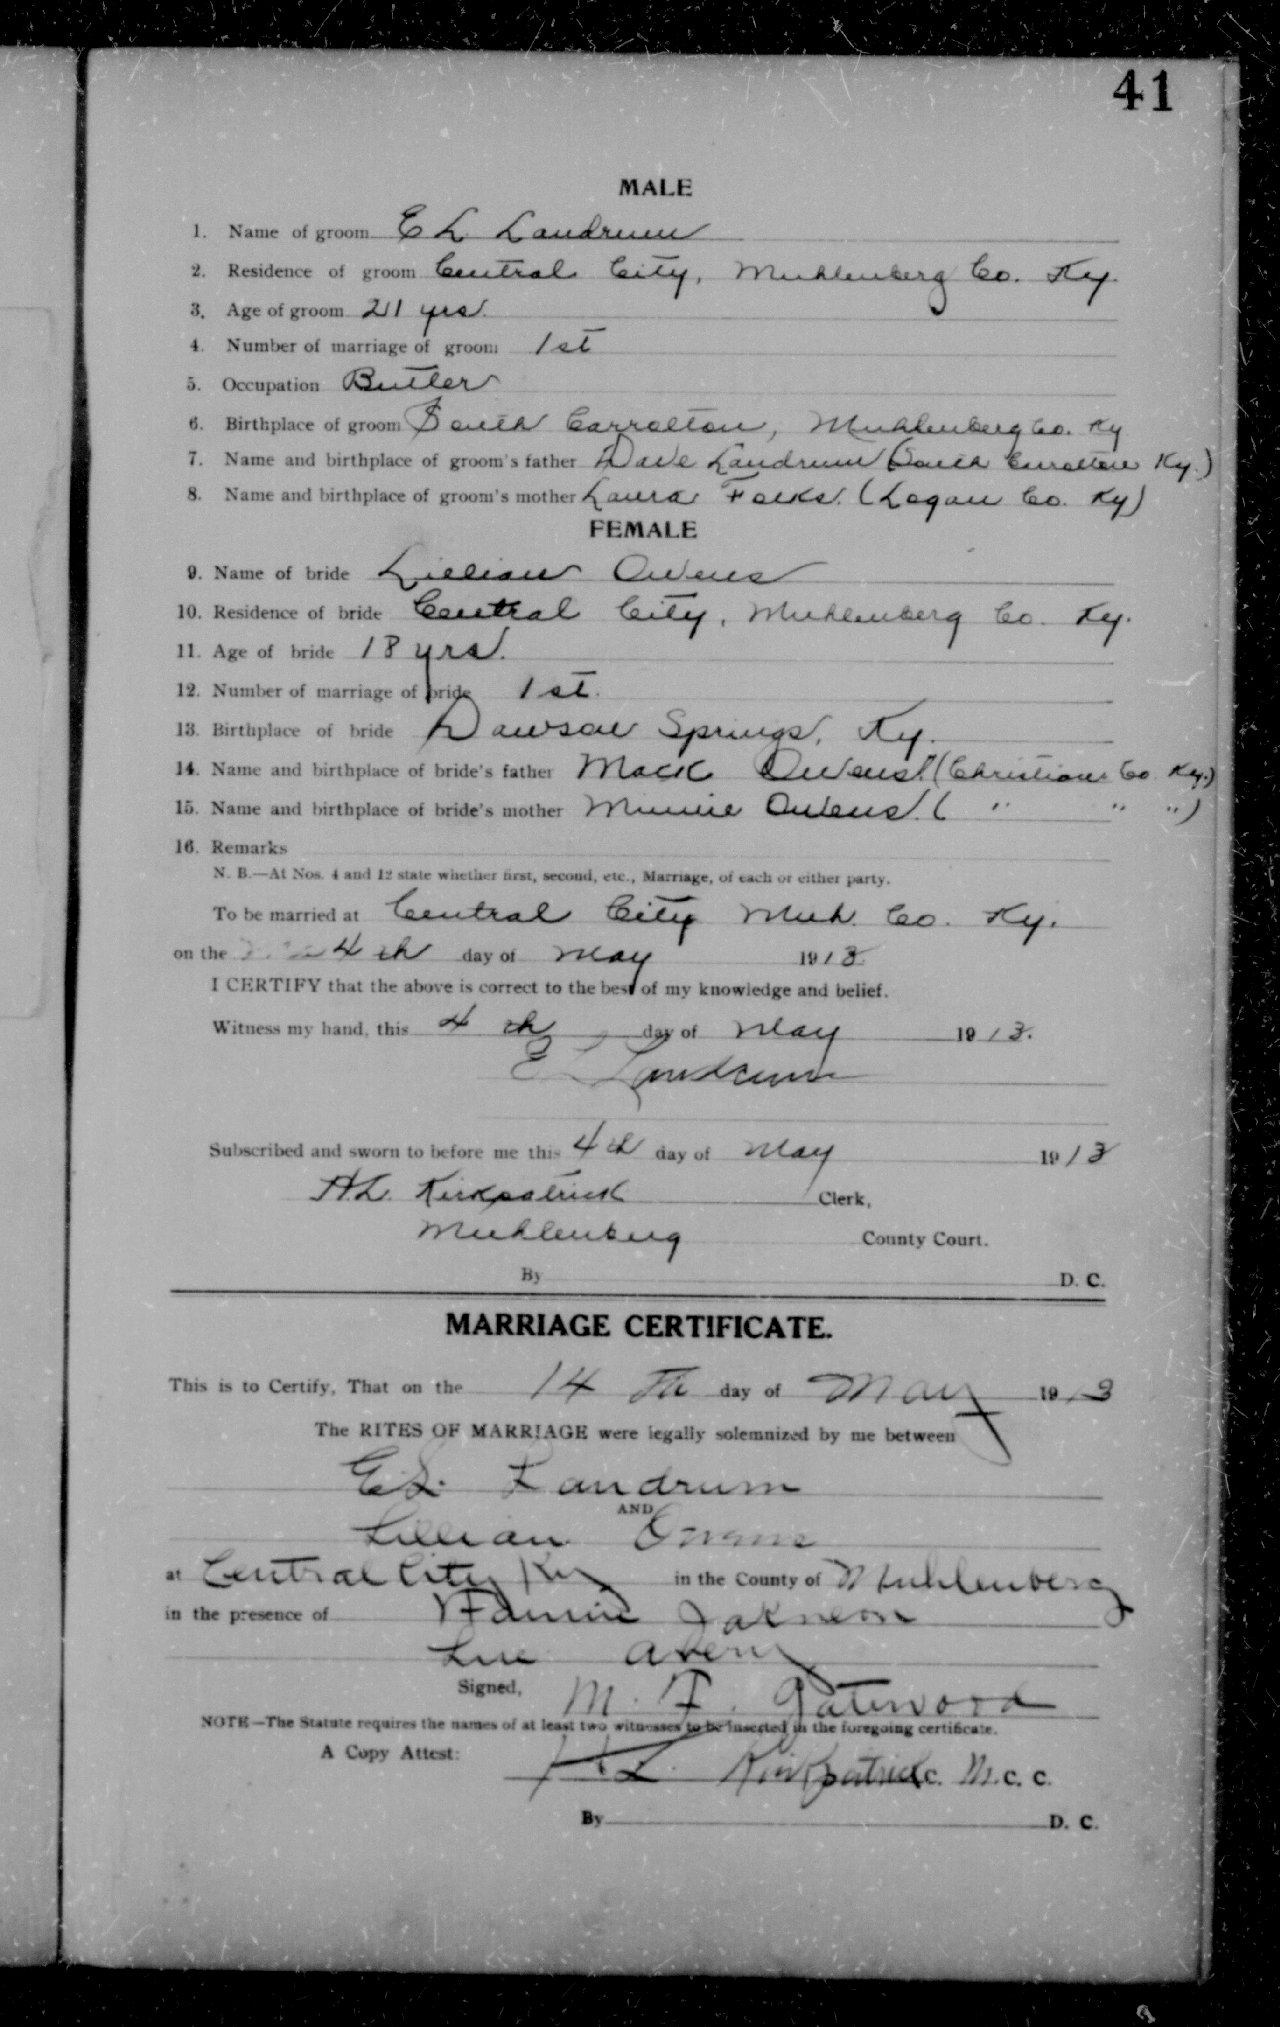 41
MALE
1. Name of groom E L Landrum
2. Residence of groom Central City, Muhlenberg Co. Ky.
3. Age of groom 21 yrs.
4. Number of marriage of groom 1st
5. Occupation Butler
6. Birthplace of groom South Carrolton, Muhlenberg Co. Ky
7. Name and birthplace of groom's father Dave Landrum (South Carrolton Ky.)
8. Name and birthplace of groom's mother Laura (Logan Co. Ky)
FEMALE
9. Name of bride Lillian Owens
10. Residence of bride Central City, Muhlenberg Co. Ky.
11. Age of bride 18 yrs.
12. Number of marriage of bride 1st.
13. Birthplace of bride Dawson Springs, Ky.
14. Name and birthplace of bride's father Mack Owens (Christian Co. Ky.)
15. Name and birthplace of bride's mother Minnie Owens. ( " " ")
16. Remarks
N. B.—At Nos. 4 and 12 state whether first, second, etc., Marriage, of each or either party.
To be married at Central City Muh. Co. Ky.
on the 4th day of May 1913
I CERTIFY that the above is correct to the best of my knowledge and belief.
Witness my hand, this 4th day of May 1913.
E L Landrum
Subscribed and sworn to before me this 4th day of May 1913
H.L. Kirkpatrick Clerk,
Muhlenberg County Court.
By D. C.
MARRIAGE CERTIFICATE.
This is to Certify, That on the 14 Th day of May 1913
The RITES OF MARRIAGE were legally solemnized by me between
E.L. Landrum
AND
Lillian Owens
at Central City Ky in the County of Muhlenberg
in the presence of
Avery
Signed, M. F. Gatewood
NOTE—The Statute requires the names of at least two witnesses to be inserted in the foregoing certificate.
A Copy Attest: H L. Kirkpatrick C. M. C. C.
By D. C.